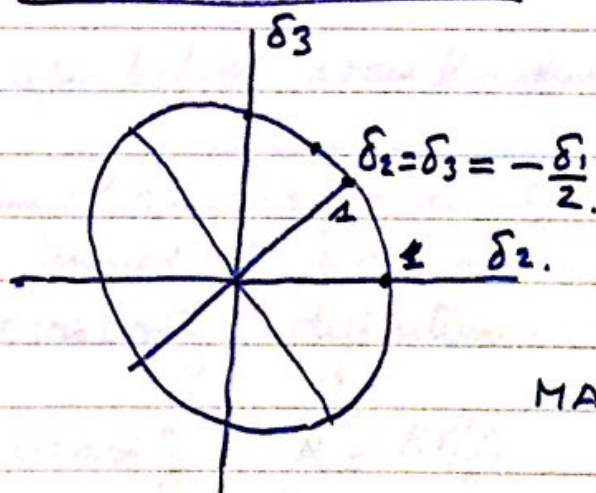 δ3
δ2=δ3 = - δ1/2.
1
1 δ2.
MA